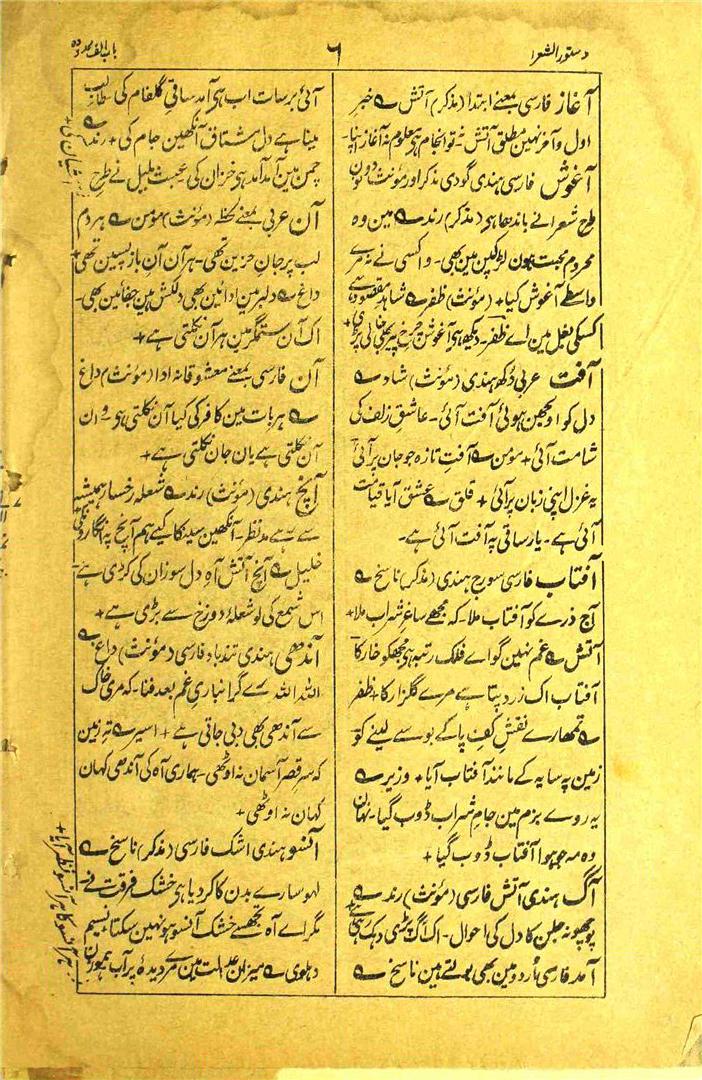 دستور الشعرا
۶
باب الف ممدودہ
آغاز فارسی بمعنے ابتدا (مذکر) آتش ؎ خبر
اول و آخر نہین مطلق آتش ۔ نہ تو انجام ہی معلوم نہ آغاز اپنا ۔
آغوش فارسی ہندی گودی مذکر اور مؤنث دونون
طرح شعرا نے باندھا ہی (مذکر) رند ؎ مین وہ
محروم محبت ہون لڑکپن مین بھی ۔ وا کسی نے نہ مرے
واسطے آغوش کیا + (مؤنث) ظفر ؎ شاہد مقصود ہے
کسکی بغل مین اے ظفر ۔ دیکھ ہی آغوش چرخ پیر بھی خالی پڑی +
آفت عربی دُکھ ہندی (مؤنث) شاد ؎
دل کو اوجھن ہوئی آفت آئی ۔ عاشق زلف کی
شامت آئی + مؤمن ؎ آفتِ تازہ جو جان پر آئی
یہ غزل اپنی زبان پر آئی + قلق ؎ عشق آیا قیامت
آئی ہے ۔ یار ساقی پہ آفت آئی ہے ۔
آفتاب فارسی سورج ہندی (مذکر) ناسخ ؎
آج ذرے کو آفتاب ملا ۔ کہ مجھے ساغر شراب ملا +
آتش ؎ غم نہین گو اے فلک رتبہ ہی مجھکو خار کا
آفتاب اک زرد پتا ہے مرے گلزار کا + ظفر
؎ تمھارے نقش کف پا کے بوسے لینے کو
زمین پہ سایہ کے مانند آفتاب آیا + وزیر ؎
یہ روے بزم مین جام شراب ڈوب گیا ۔ نہان
وہ مہ جو ہوا آفتاب ڈوب گیا +
آگ ہندی آتش فارسی (مؤنث) رند ؎
پوچھو نہ جلن کا دل کی احوال ۔ اک آگ پڑی دہک رہی ہے +
آمد فارسی ہی اُردو مین بھی بولتے ہین ناسخ ؎
آئی برسات اب ہی آمد ساقی گلفام کی طالب
مینا ہے دل مشتاق آنکھین جام کی + رند ؎
چمن مین آمد آمد ہی خزان کی عبث بلبل نے طرح
آشیان کی +
آن عربی بمعنے لحظہ (مؤنث) مؤمن ؎ ہر دم
لب پر جانِ حزین تھی ۔ ہر آن آنِ باز پسین تھی +
داغ ؎ دلبر مین ادائین بھی دلکش ہین جفائین بھی ۔
اک آن ستمگر مین ہر آن نکلتی ہے +
آن فارسی بمعنے معشوقانہ ادا (مؤنث) داغ
؎ ہر بات مین کافر کی کیا آن نکلتی ہو ۔ وان
آن نکلتی ہے یان جان نکلتی ہے +
آنچ ہندی (مؤنث) رند ؎ شعلہ رخسار ہمیشہ
سے رہے مد نظر ۔ آنکھین سینکا کیے ہم آنچ پہ انگارون کی
خلیل ؎ آنچ آتش آہِ دل سوزان کی کڑی ہے ۔
اس شمع کی لو شعلۂ دوزخ سے بڑی ہے +
آندھی ہندی تندباد فارسی (مؤنث) داغ ؎
اللہ اللہ رے گرانباری غم بعد فنا ۔ کہ مری خاک
سے آندھی بھی دبی جاتی ہے + اسیر ؎ تہِ زمین
کہ سرِ قصر آسمان نہ اوٹھی ۔ ہماری آہ کی آندھی کہان
کہان نہ اوٹھی +
آنسو ہندی اشک فارسی (مذکر) ناسخ ؎
لہو سارے بدن کا کر دیا ہی خشک فرقت نے ۔
مگر اے آہ تجھسے خشک آنسو ہو نہین سکتا + نسیم
دہلوی ؎ میزان عدالت مین مرے دیدہ پر آب